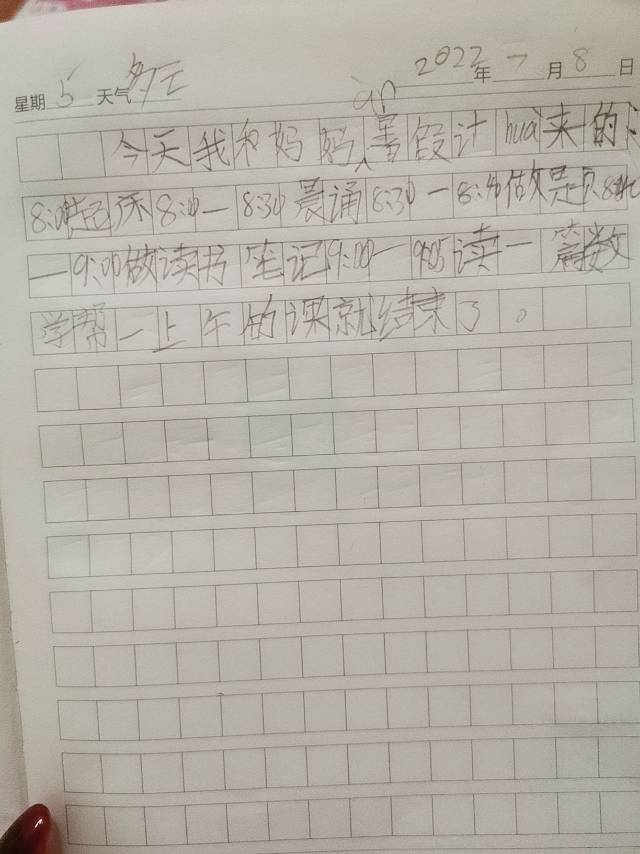 星期 5 天气 多云 2022年 7月 8日
àn
今天我和妈妈暑假计 huà 来的
8:00起床 8:00—8:30 晨诵 8:30—8:40 做
—9:00做读书笔记 9:00—9:05读一篇数
学帮一上午的课就结束了。